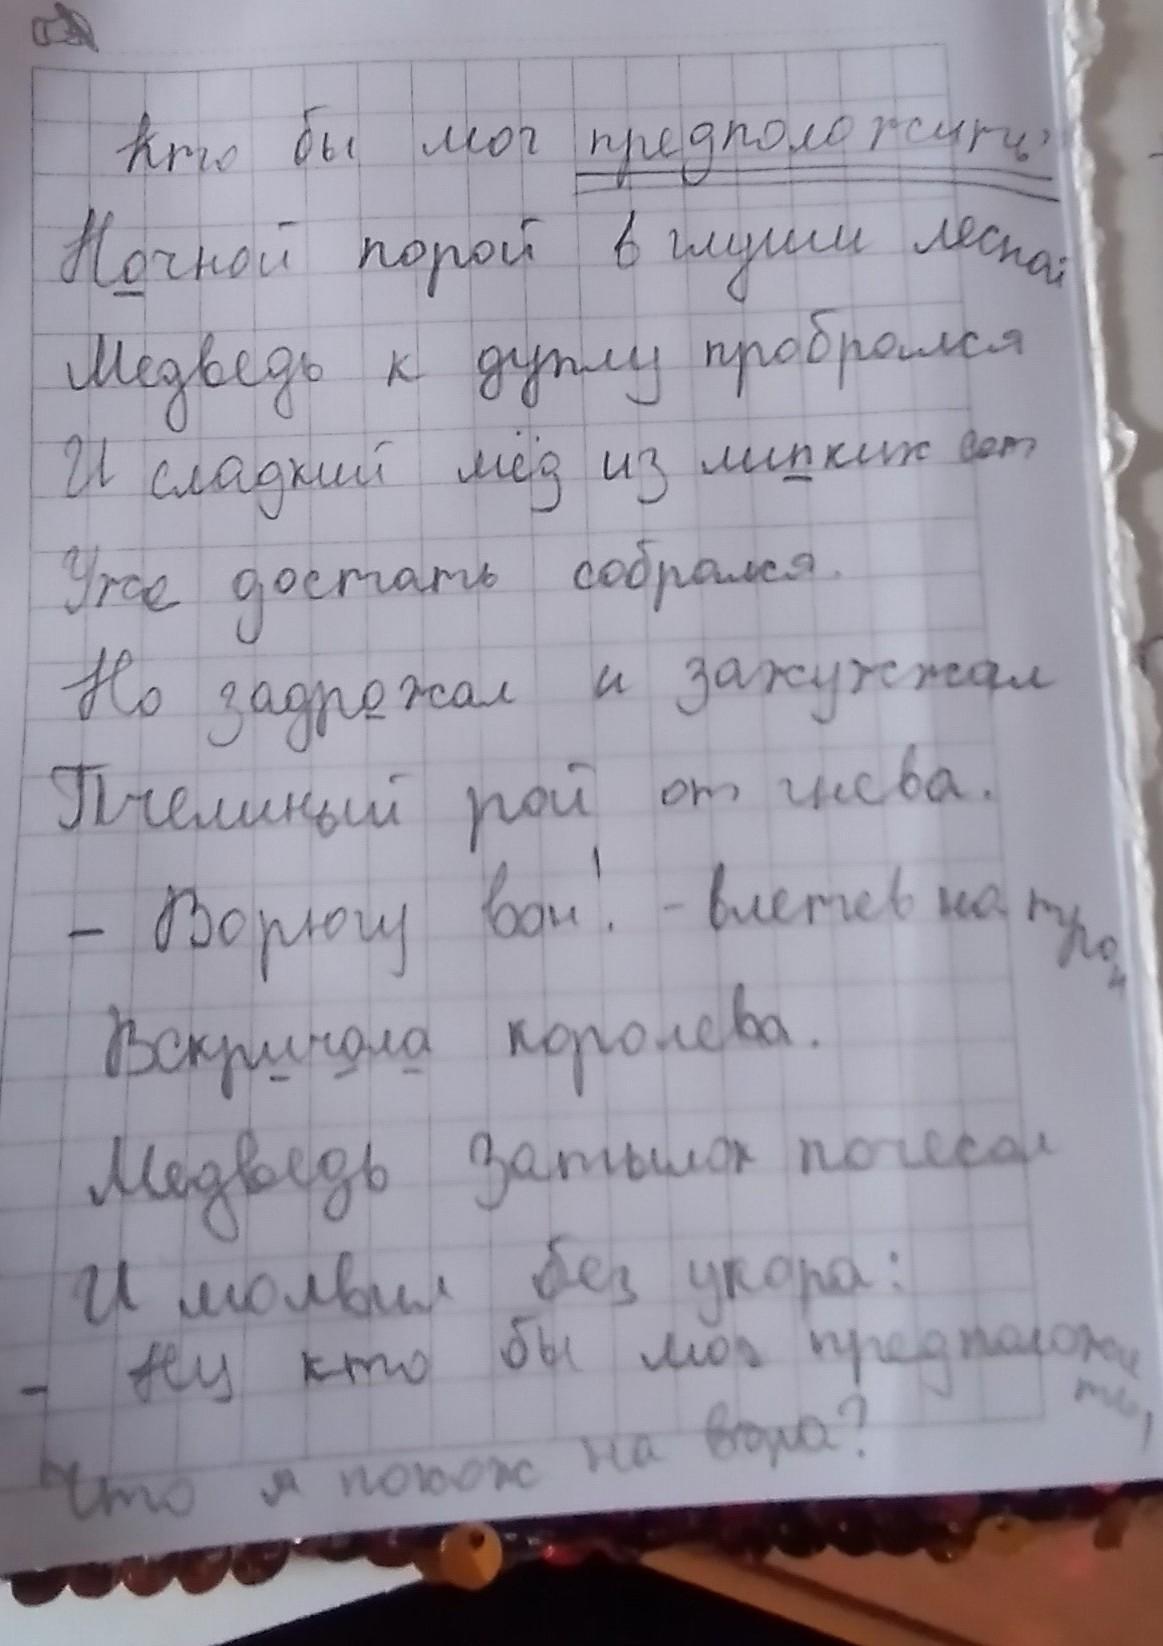 Кто бы мог предположить?
Ночной порой в глуши лесной
Медведь к дуплу пробрался
И сладкий мёд из липких сот
Уже достать собрался.
Но задрожал и зажужжал
Пчелиный рой от гнева.
- Ворюгу вон! - влетев на трон
Вскричала королева.
Медведь затылок почесал
И молвил без укора:
- Ну кто бы мог предположить,
Что я похож на вора?